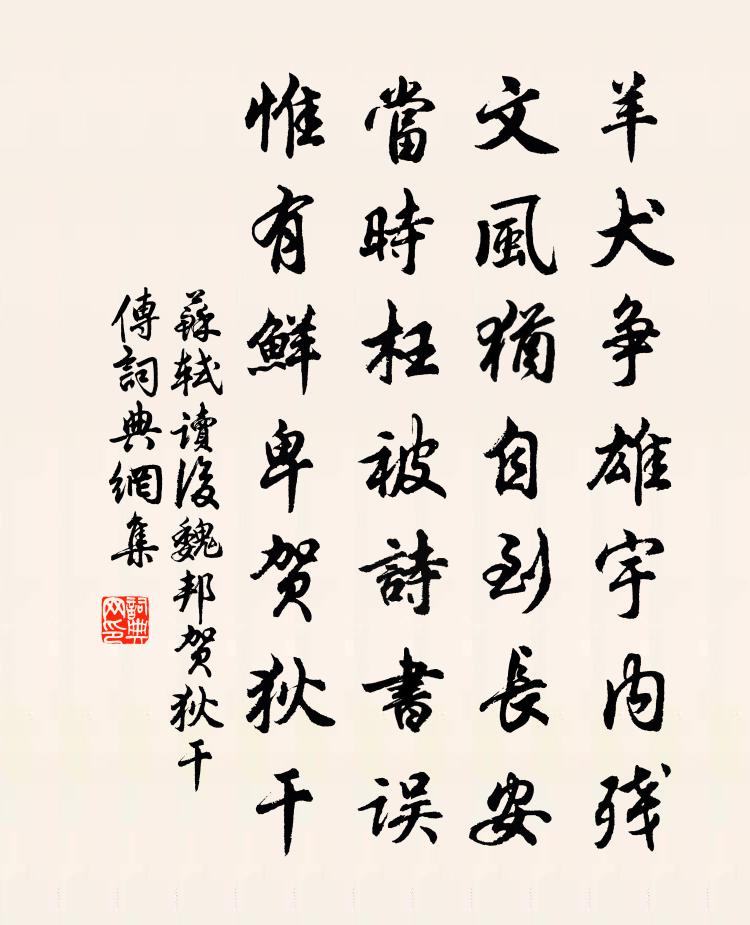 羊犬争雄宇内残
文風猶自到長安
當時枉被詩書误
惟有鮮卑贺狄干
蘇軾讀後魏邦贺狄干
傳詞典網集
詞典
网印